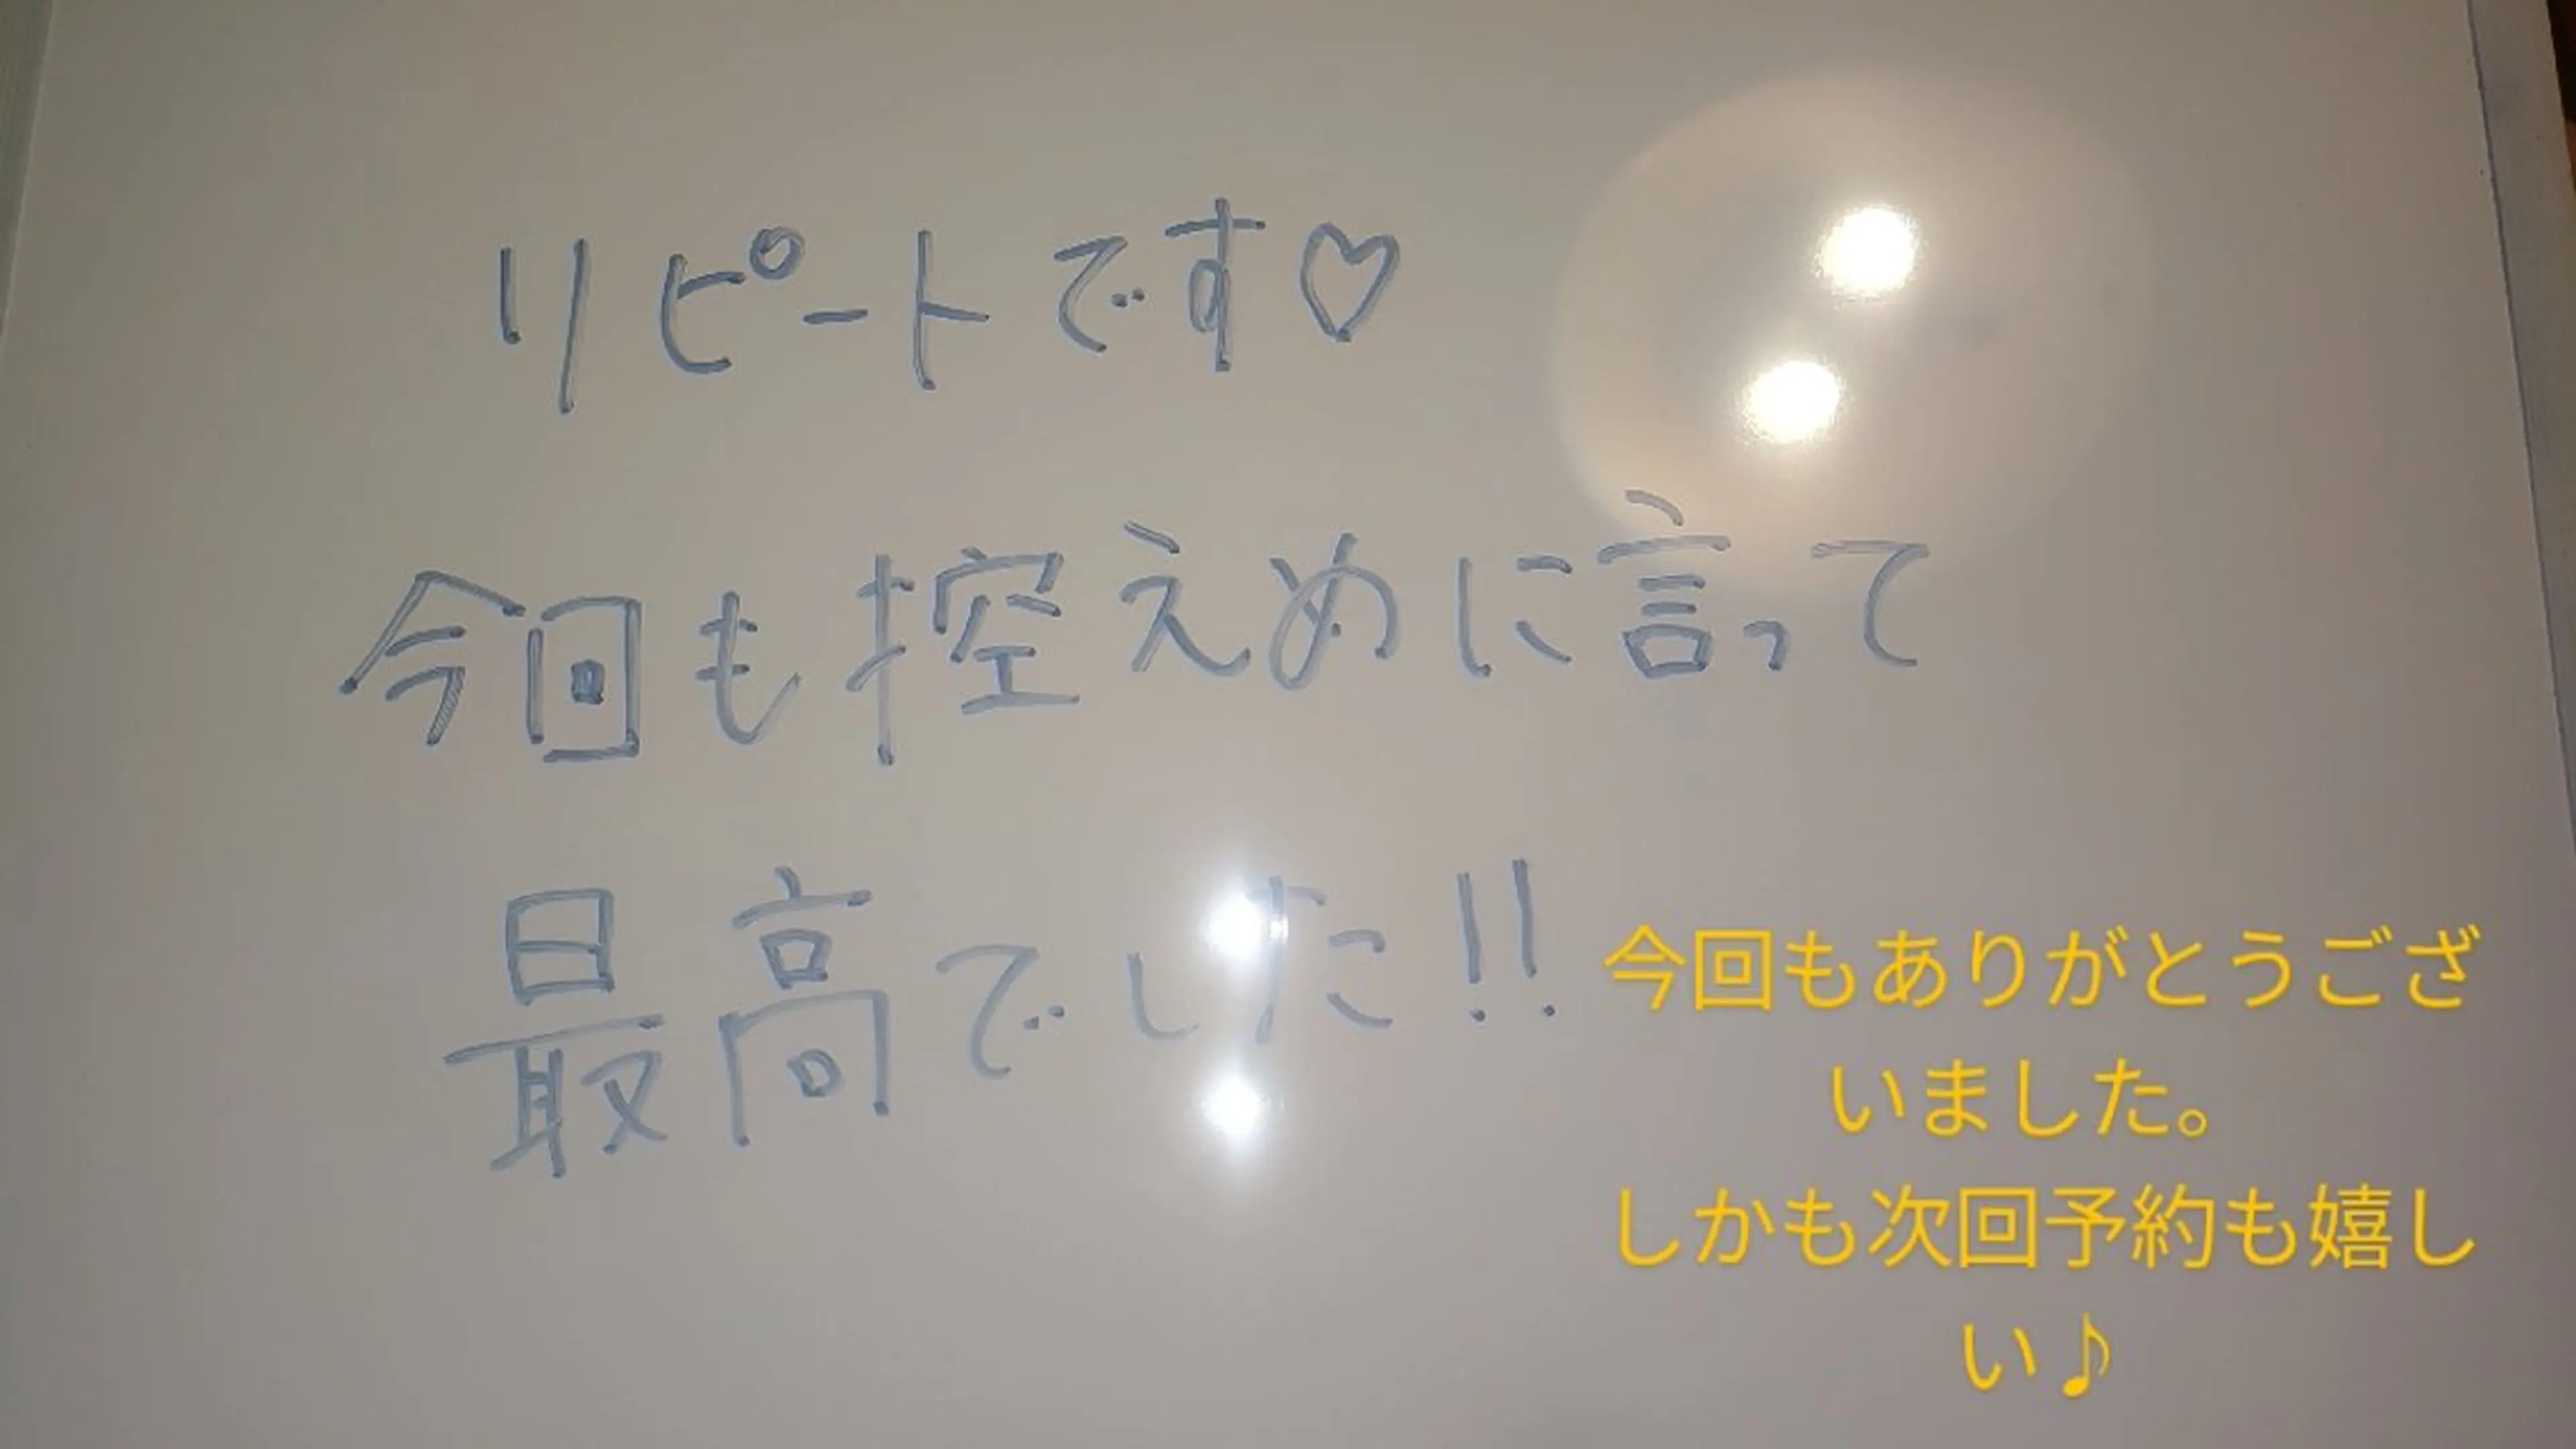 リピートです♡
今回も控えめに言って
最高でした!!
今回もありがとうござ
いました。
しかも次回予約も嬉し
い♪